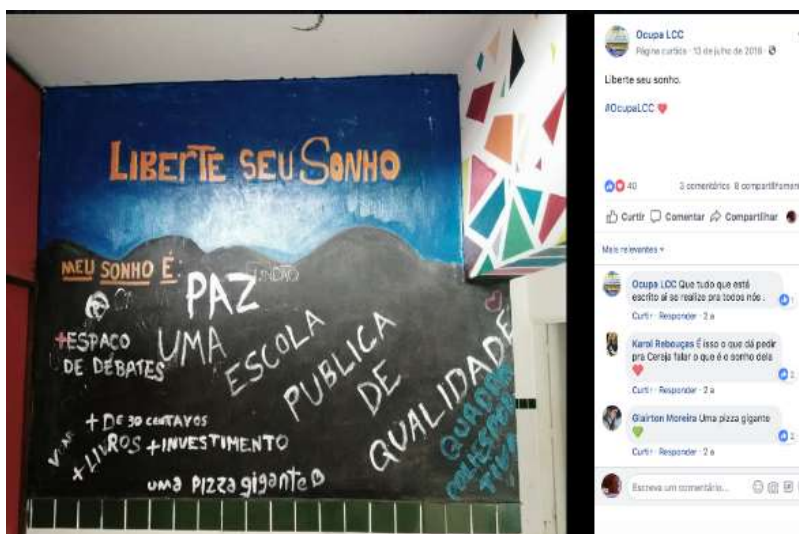 LIBERTE SEU SONHO
MEU SONHO É:
LINDÃO
PAZ
+ESPAÇO
DE DEBATES
UMA
ESCOLA
PUBLICA
DE
QUALIDADE
+ DE 30 CENTAVOS
VOAR
+LIVROS +INVESTIMENTO
uma pizza gigante
QUADRA
POLIESPOR
TIVA
Ocupa LCC
Página curtida · 13 de julho de 2016
Liberte seu sonho.
#OcupaLCC
40
3 comentários 8 compartilhamen
Curtir Comentar Compartilhar
Mais relevantes
Ocupa LCC Que tudo que está
escrito aí se realize pra todos nós .
1
Curtir · Responder · 2 a
Karol Rebouças É isso o que dá pedir
pra Cereja falar o que é o sonho dela
2
Curtir · Responder · 2 a
Glairton Moreira Uma pizza gigante
2
Curtir · Responder · 2 a
Escreva um comentário...